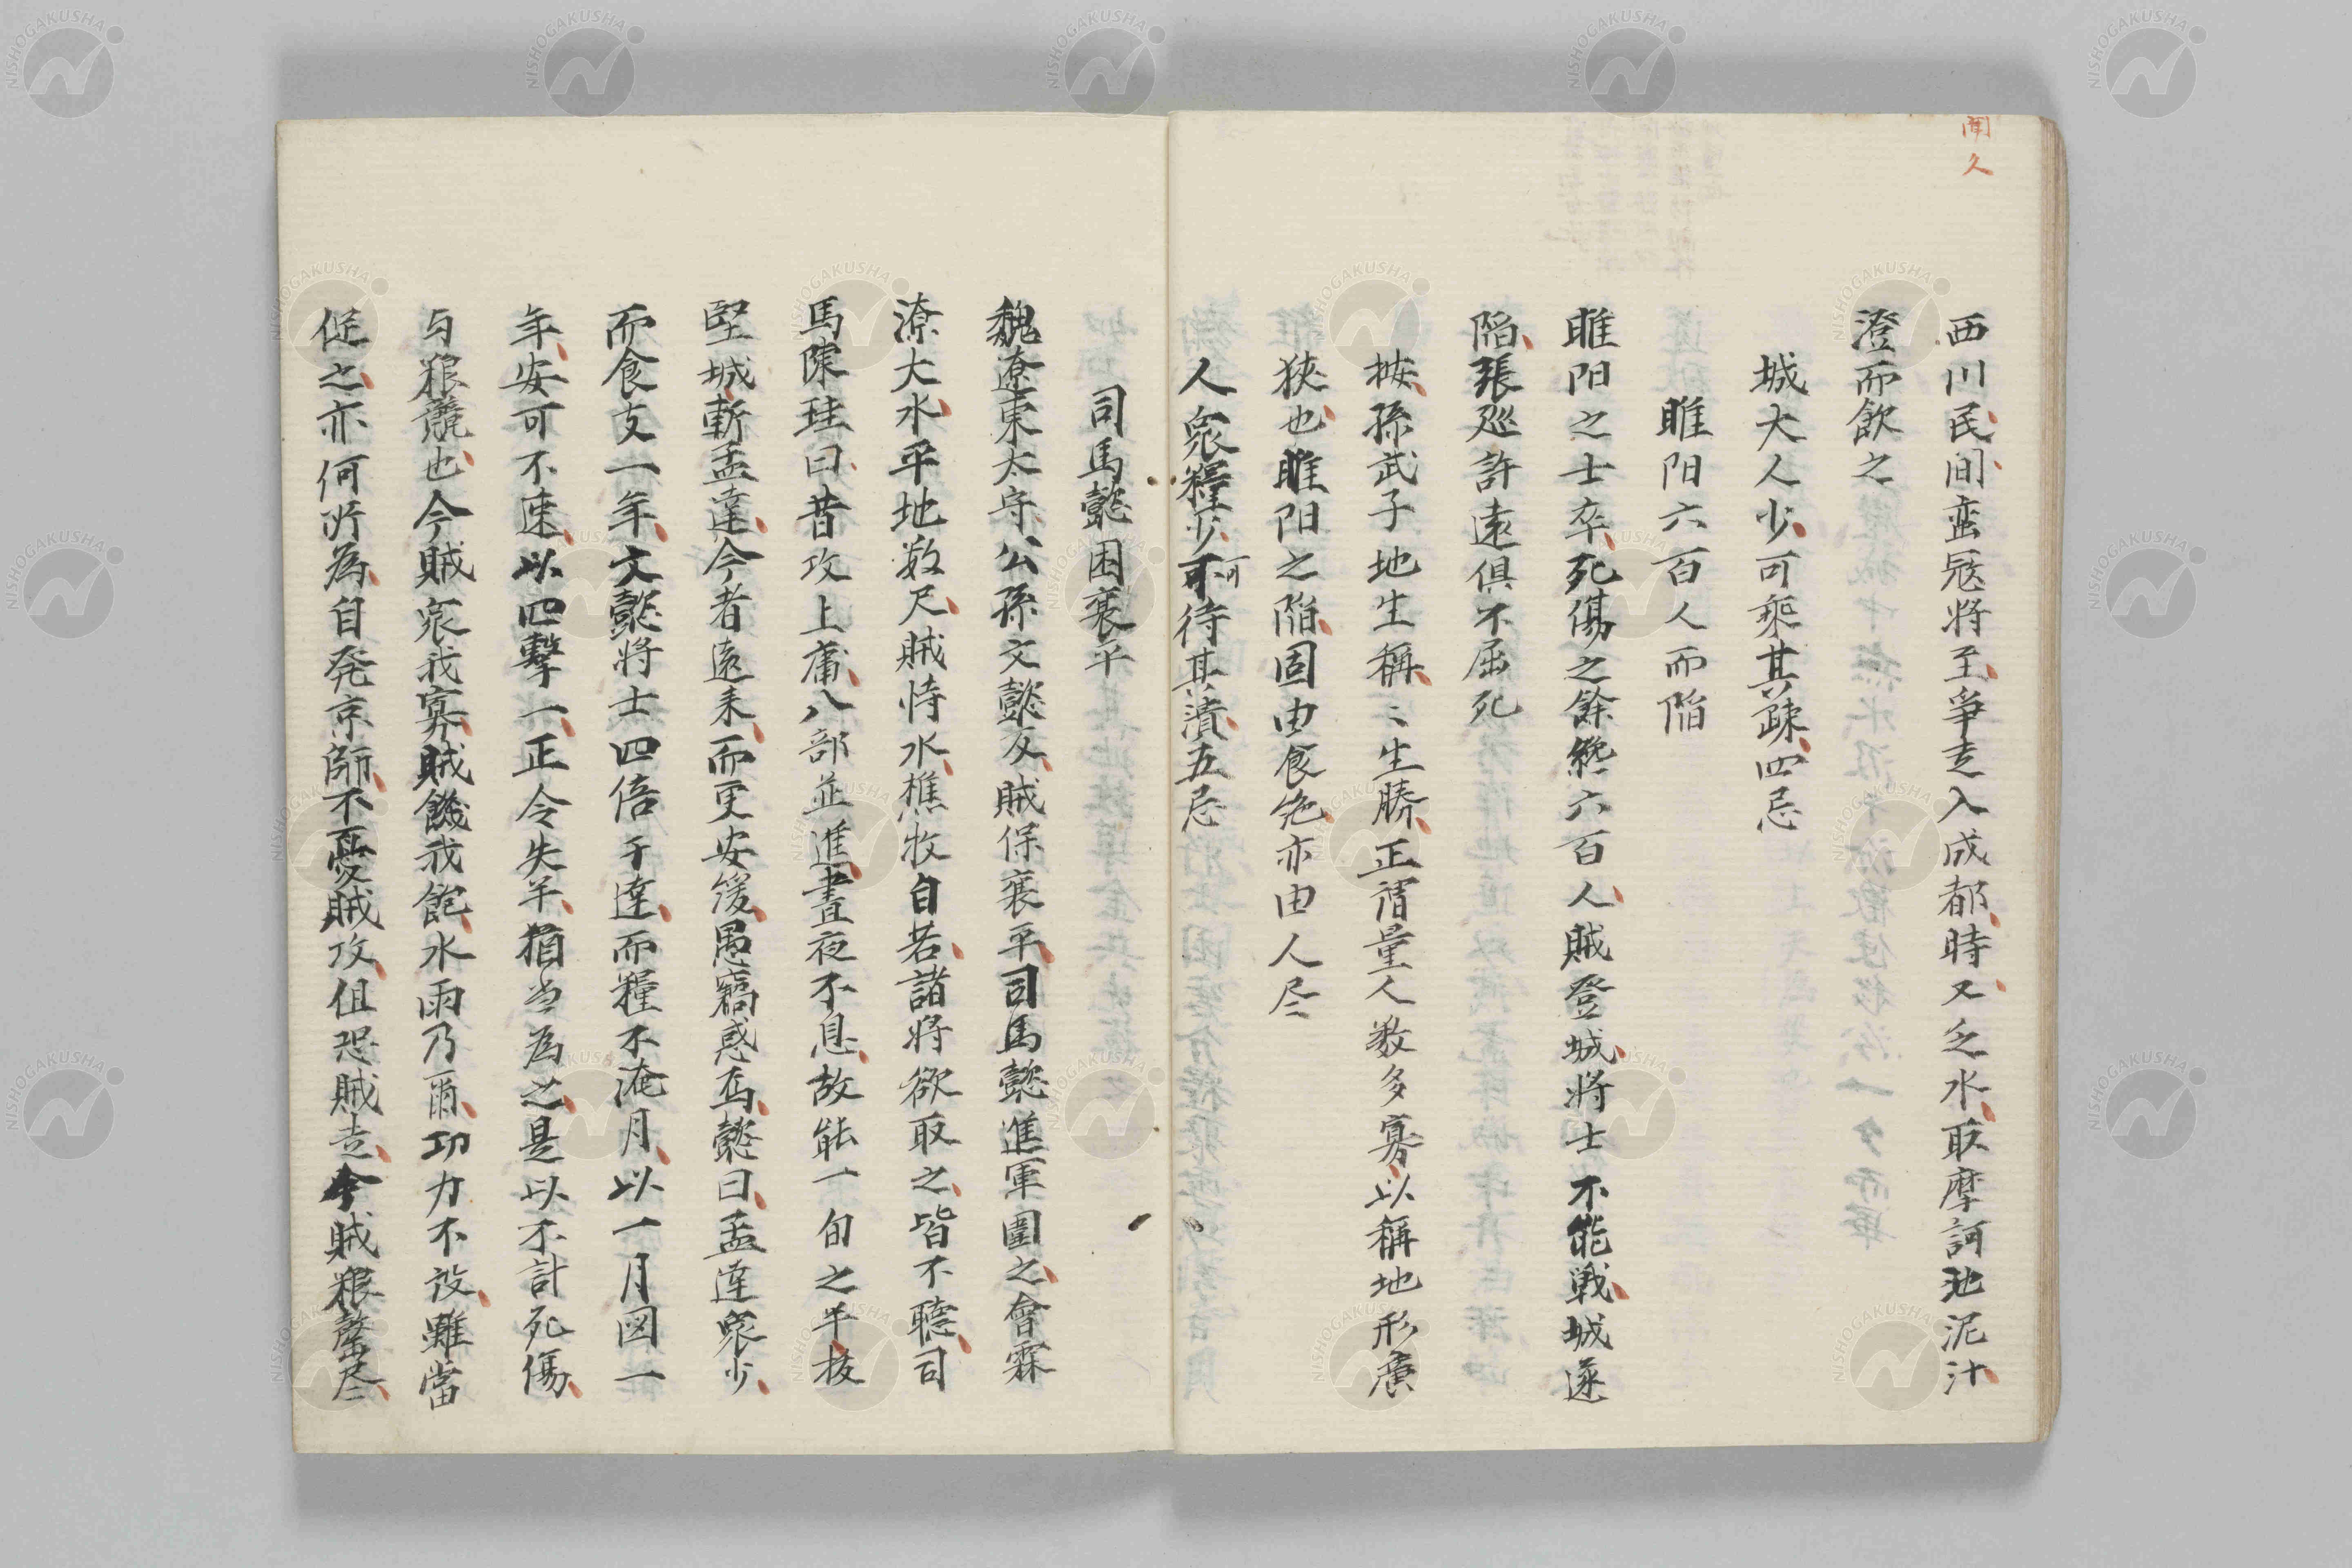 聞久
西川民間蛮冦将至争走入成都時又乏水取摩訶池泥汁
澄而飲之
城大人少可乘其疎四忌
睢阳六百人而陥
睢阳之士卒死傷之餘纔六百人賊登城将士不能戦城遂
陥張廵許遠俱不屈死
按孫武子地生稱〻生勝正謂量人数多寡以稱地形廣
狹也睢阳之陥固由食絶亦由人尽
人衆糧少可待其潰五忌
可
司馬懿困襄平
魏遼東太守公孫文懿反賊保襄平司馬懿進軍圍之會霖
潦大水平地数尺賊恃水樵牧自若諸将欲取之皆不聴司
馬陳珪曰昔攻上庸八部並進晝夜不息故能一旬之半抜
堅城斬孟達今者遠来而更安緩愚竊惑焉懿曰孟達衆少
而食支一年文懿将士四倍于達而糧不淹月以一月図一
年安可不速以四擊一正令失半猶当為之是以不計死傷
与粮競也今賊衆我寡賊饑我飽水雨乃爾功力不設雖當
促之亦何所為自発京師不憂賊攻但恐賊走今賊粮罄尽